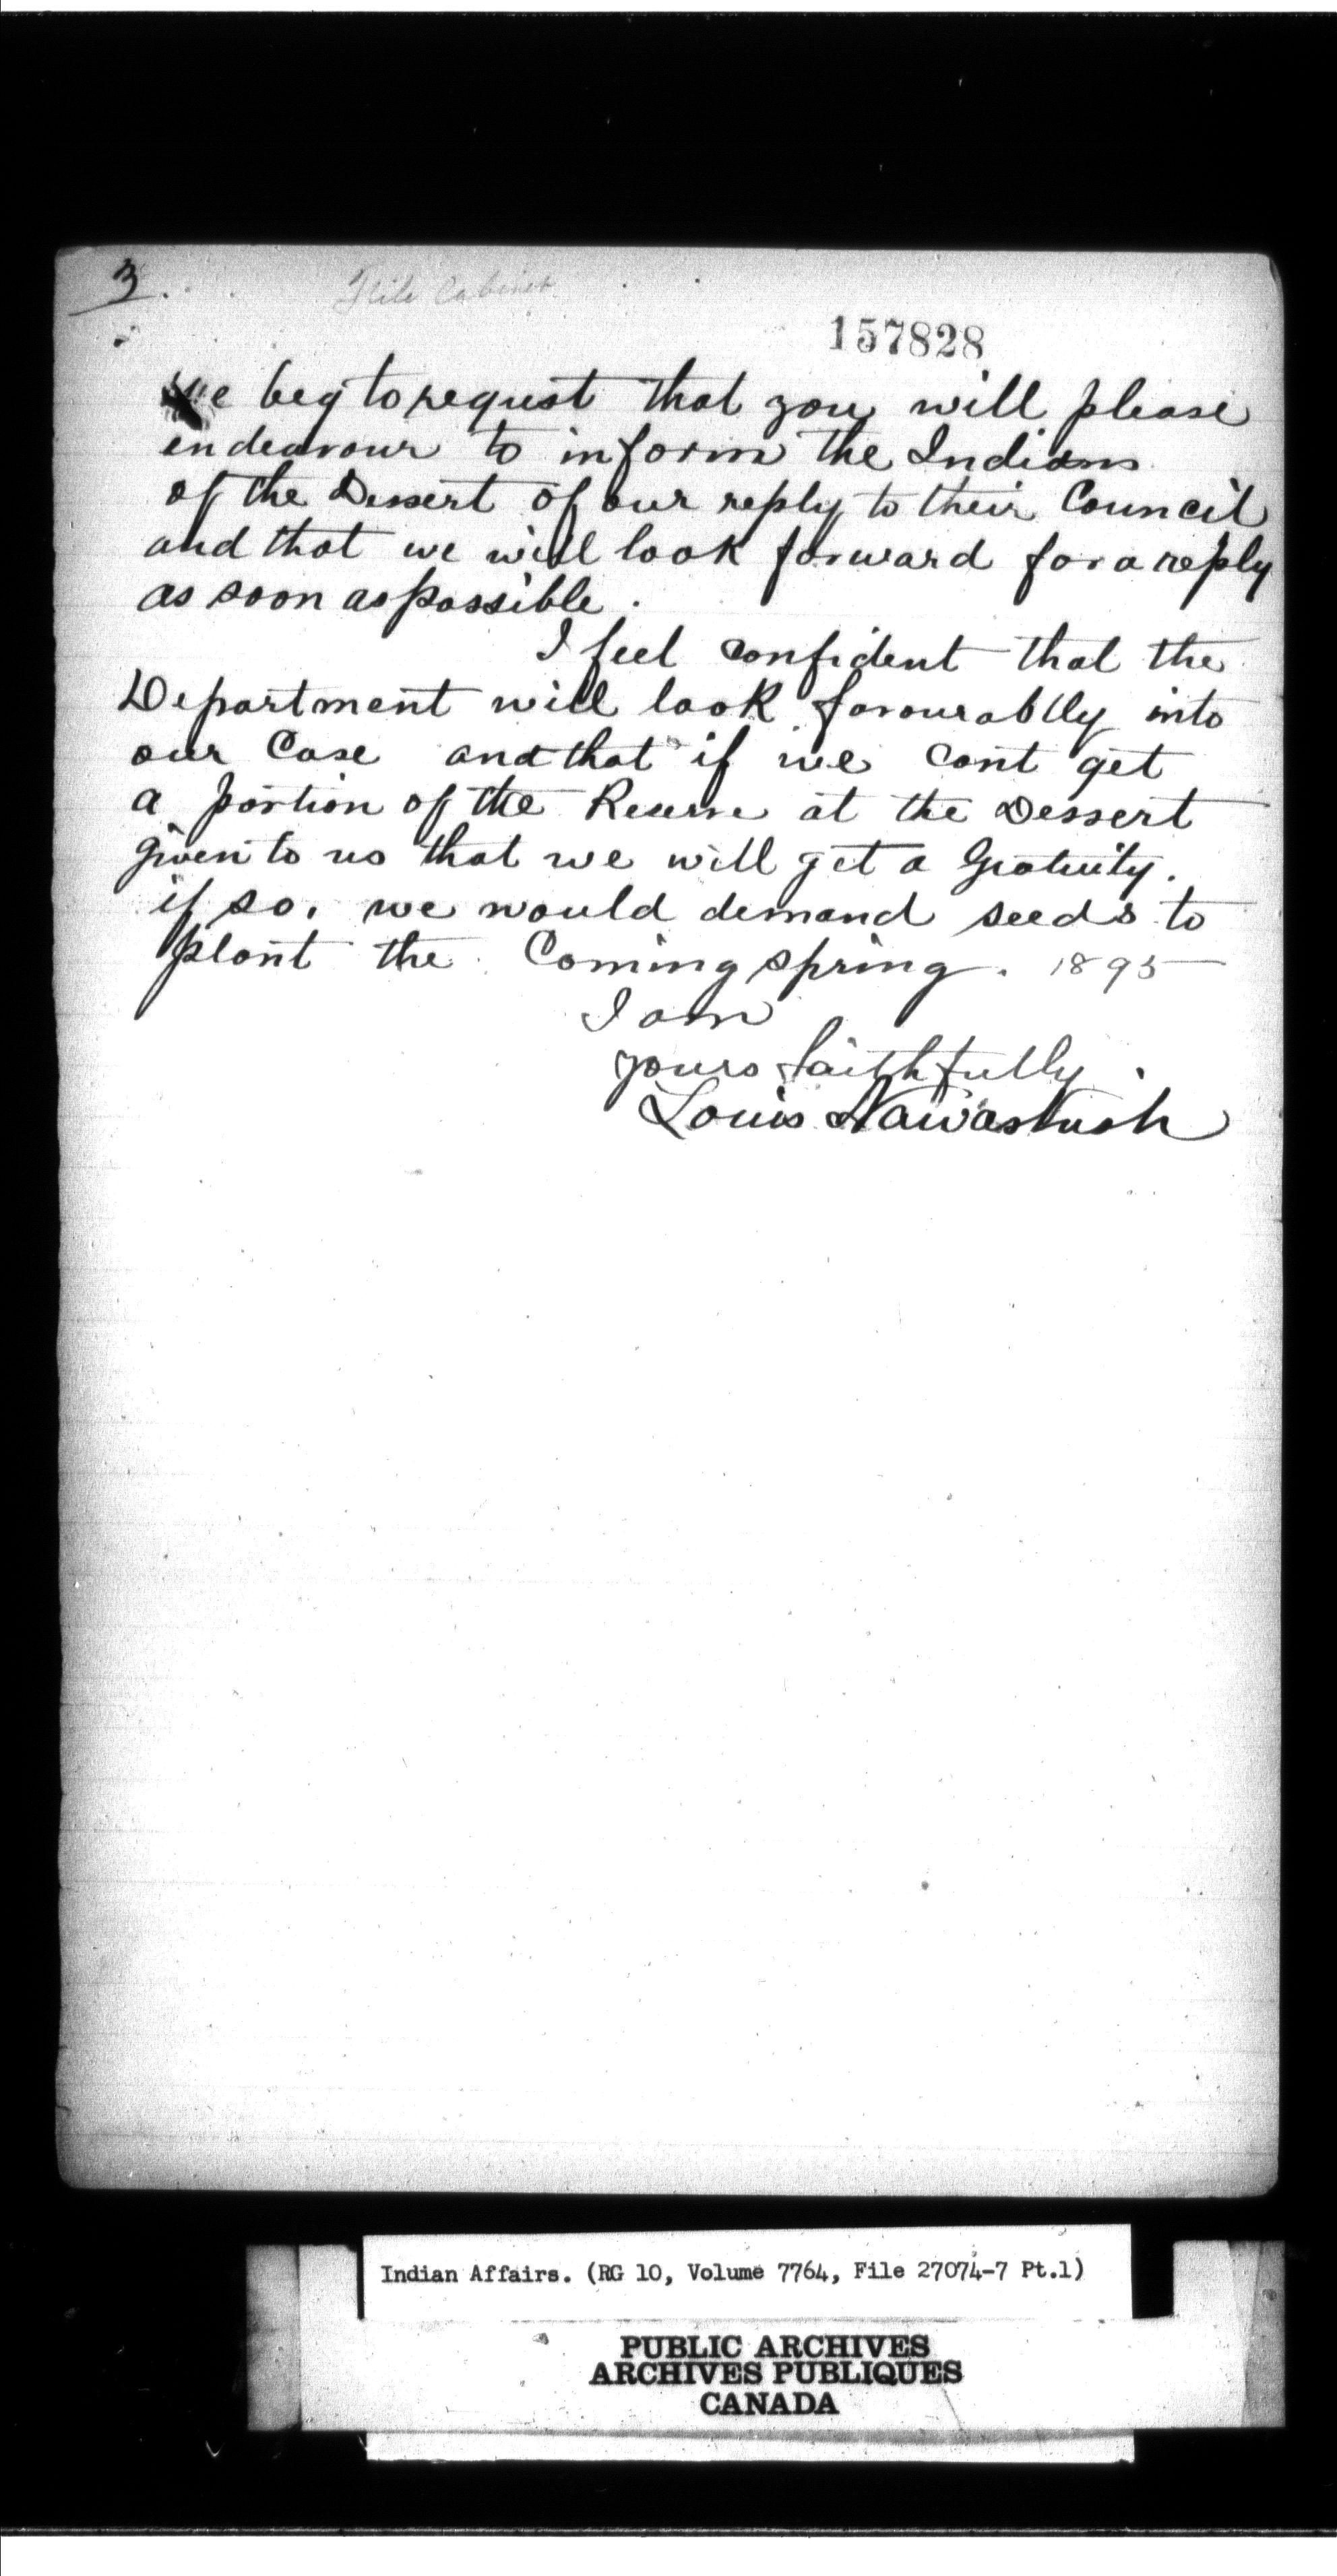 3.
File Cabinet
157828
We beg to request that you will please
endeavour to inform the Indians
of the Dessert of our reply to their Council
and that we will look forward for a reply
as soon as possible.
I feel confident that the
Department will look favourablly into
our Case and that if we cant get
a portion of the Reserve at the Dessert
given to us that we will get a Gratuity.
if so. we would demand seeds to
plant the Coming spring. 1895
I am
yours faithfully.
Louis
Indian Affairs. (RG 10, Volume 7764, File 27074-7 Pt.1)
PUBLIC ARCHIVES
ARCHIVES PUBLIQUES
CANADA